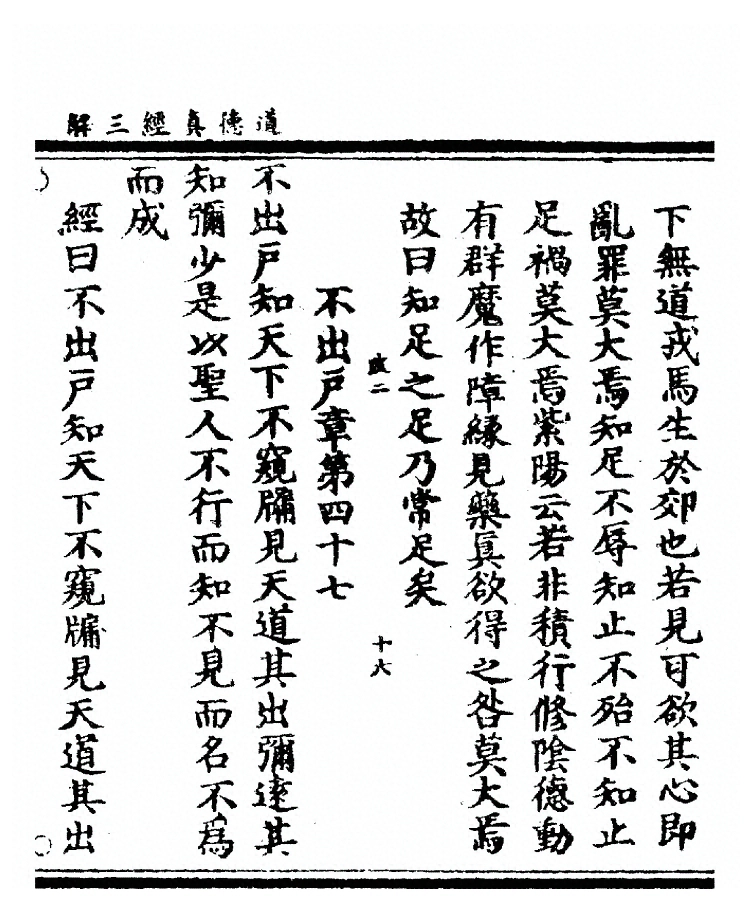 道德真經三解
下無道戎馬生於郊也若見可欲其心即
亂罪莫大焉知足不辱知止不殆不知止
足禍莫大焉紫陽云若非積行修陰德動
有群魔作障緣見藥真欲得之咎莫大焉
故曰知足之足乃常足矣
二 十六
不出戶章第四十七
不出戶知天下不窺牖見天道其出彌遠其
知彌少是以聖人不行而知不見而名不為
而成
經曰不出戶知天下不窺牖見天道其出